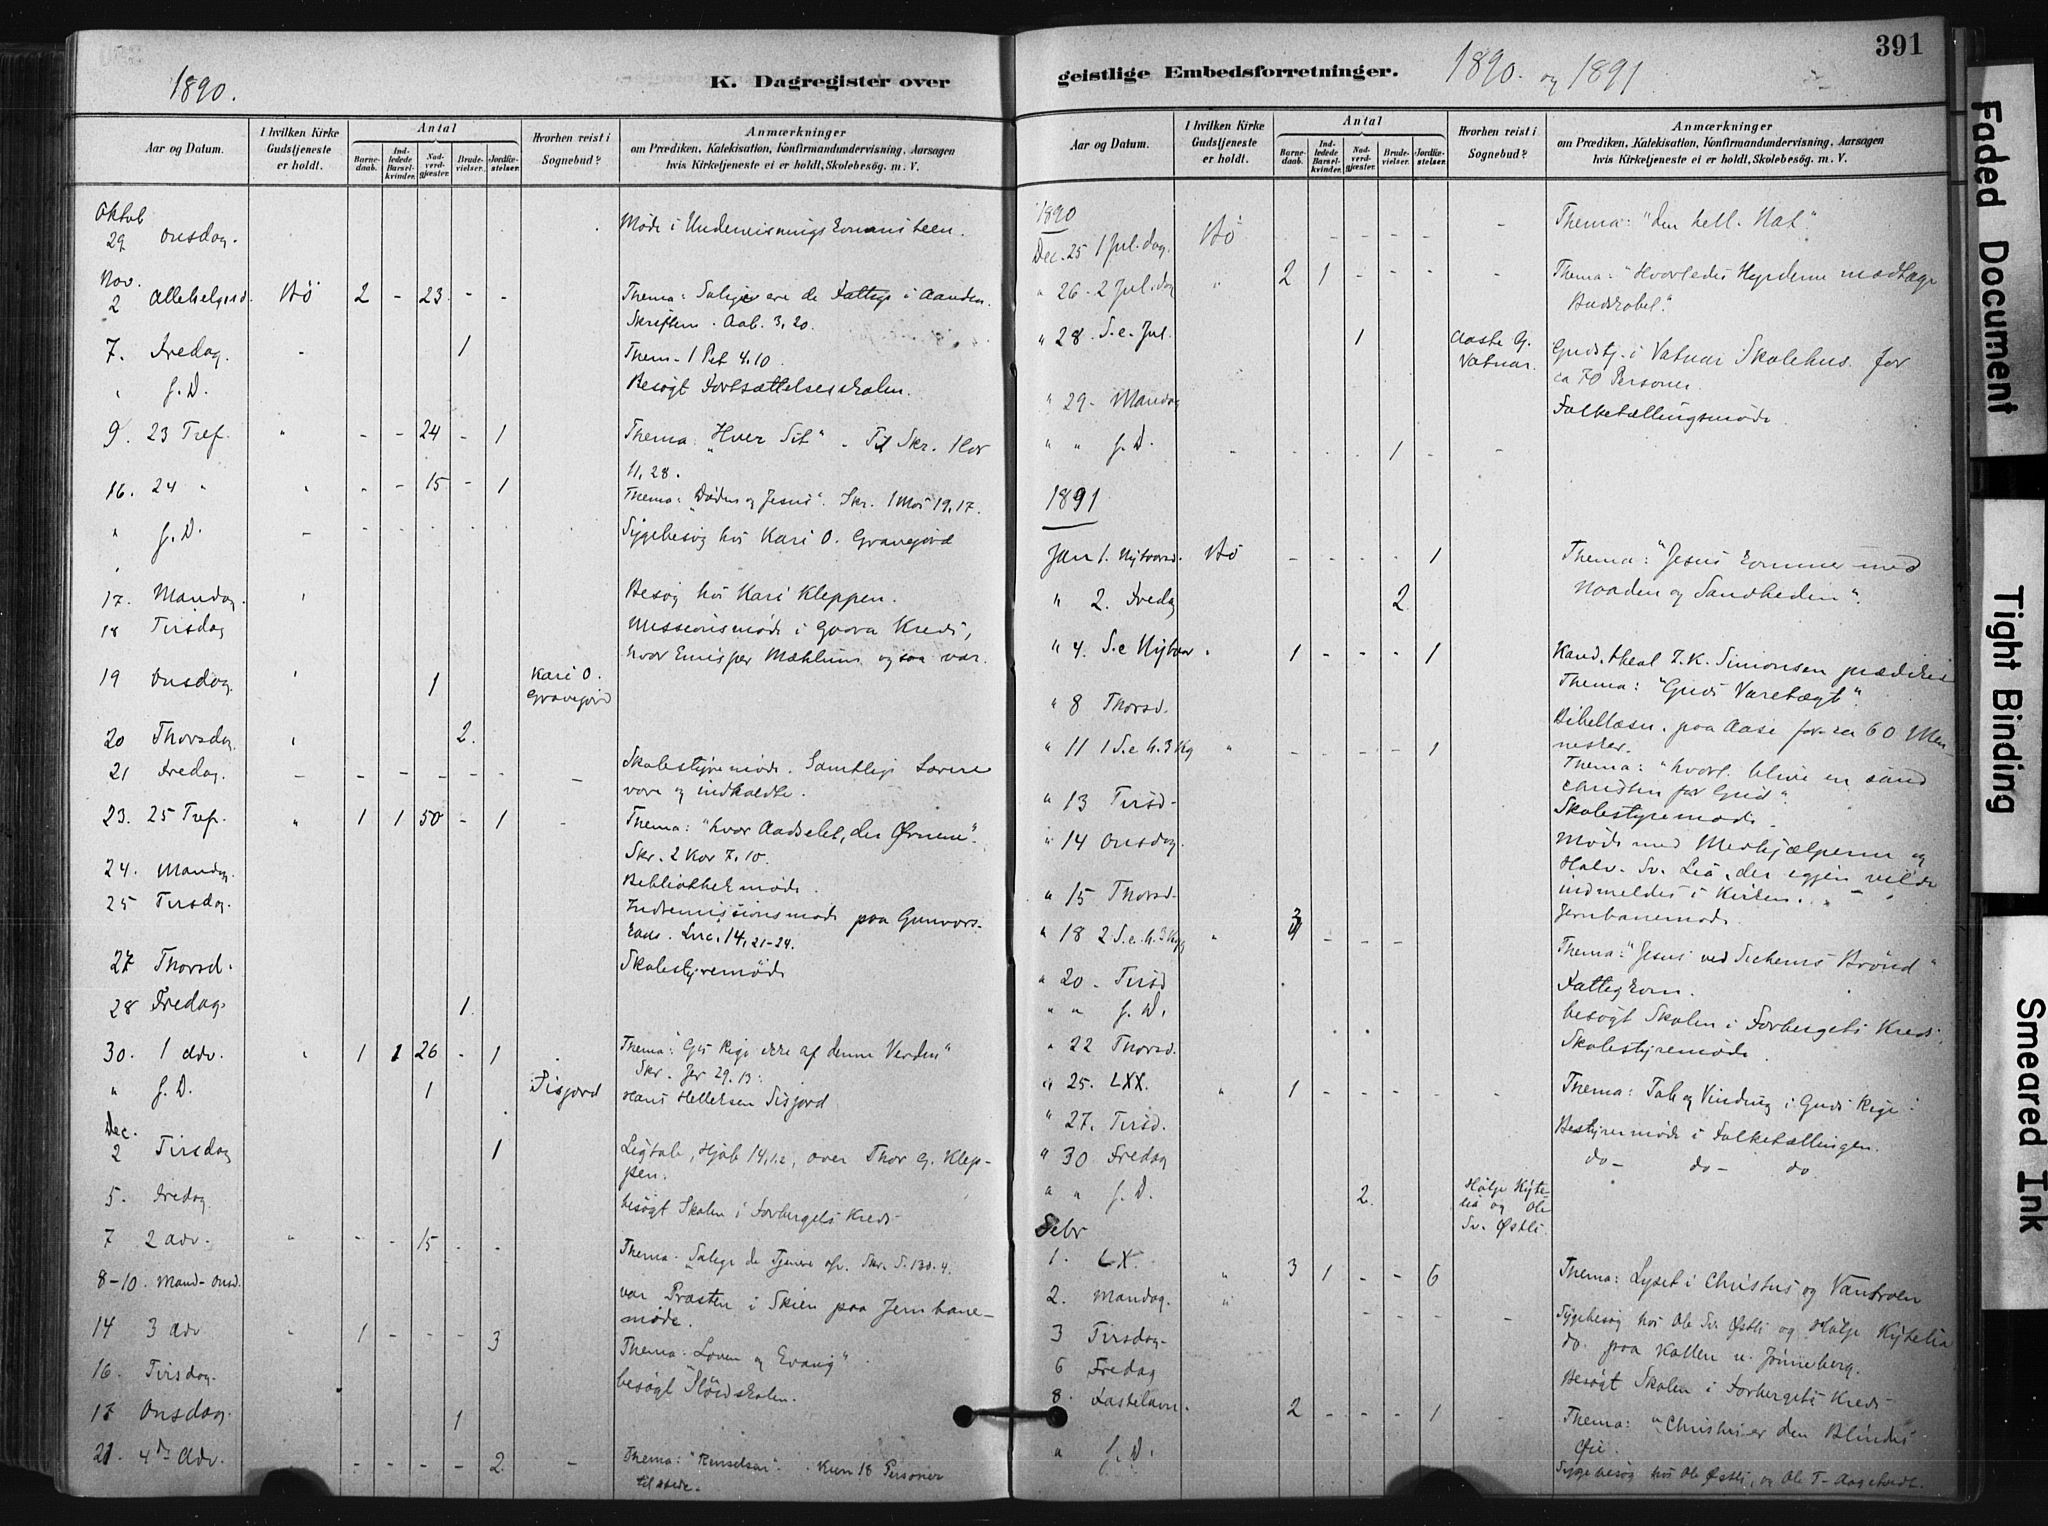 1890.
K. Dagregister over
Aar og Datum.
I hvilken Kirke Gudstjeneste er holdt.
Antal
Barnedaab.
Indledede Barselkvinder.
Nadverdgjæster.
Brudevielser.
Jordfæstelser.
Hvorhen reist i Sognebud?
Anmærkninger
om Prædiken, Katekisation, Konfirmandundervisning, Aarsagen
hvis Kirketjeneste ei er holdt, Skolebesøg. m. V.
Oktob
29 Onsdag. Møde i Undervisnings
Nov.
2 Allehelgensd. Bø 2 - 23 - - Thema: Salige ere de Fattige i Aanden.
Skriftem. Aab. 3, 20.
7. Fredag. - 1 Them - 1 Pet 4.10
" s. D. Besøgt Fortsættelsesskolen.
9. 23 Tref. " - - 24 - 1 Thema: "Hver Sit" - Skr. 1 Kor
11, 28.
16. 24 " - - 15 - 1 Thema: "Døden og Jesus". Skr. 1 Mos 19, 17.
" s. D. Sygebesøg hos Kari O. Gravejord
17. Mandag. Besøg hos Kari Kleppen.
18 Tirsdag Missionsmøde i Kreds,
hvor Mæhlum ogsaa var.
19 Onsdag. 1 Kari O.
Gravejord
20 Thorsdag. 2.
21 Fredag. Skolestyremøde. Samtlige Lærere
vare og indkaldte.
23. 25 Tref. " 1 1 50 - 1 - Thema: "hvor Aadselet, der Ørnene".
Skr. 2 Kor 7, 10.
24. Mandag Bibliothekmøde.
25 Tirsdag. Indremissionsmøde paa
Luc. 14, 21-24.
27 Thorsd. Skolestyremøde
28 Fredag. 1.
30. 1 Adv. " 1 1 26 - 1 Thema: "Gs Rige ikke af denne Verden"
Skr. Jer 29.13.
" s. D. 1 Sisjord Hans Helleksen Sisjord
Dec.
2 Tirsdag 1 Ligtale, over Thor G. Klep-
pen.
5. Fredag besøgt Skolen i Forbergets Kreds
7 2 Adv. " - - 15 - - Thema. Salige de Tjenere
8-10. Mand-Onsd. var Præsten i Skien paa Jernbane-
møde.
14 3 Adv " 1 - - - 3 Thema. Loven og Evang"
16. Tirsdag. besøgt Sløidskolen.
17 Onsdag. 1
21. 4de Adv. - - - - 2. - Thema: . Kun 18 Personer
tilstede.
geistlige Embedsforretninger.
1890. og 1891
391
Aar og Datum.
I hvilken Kirke Gudstjeneste er holdt.
Antal
Barnedaab.
Indledede Barselkvinder.
Nadvergjæster.
Brudevielser.
Jordfæstelser.
Hvorhen reist i Sognebud?
Anmærkninger
om Prædiken, Katekisation, Konfirmandundervisning, Aarsagen
hvis Kirketjeneste ei er holdt, Skolebesøg. m. V.
1890
Dec. 25 1 Jul. dag. Bø - - - - - - Thema: "Den hell. Nat".
" 26. 2 Jul. dag " 2 1 - - - Thema: "Hvorledes Hyrderne modtage
Budskabet."
" 28. S. e. Jul. 1 Aaste G.
Vatnar. Gudstj. i Vatnar Skolehus for
ca 70 Personer.
" 29. Mandag Folketællingsmøde.
" " s. D. 1
1891
Jan 1. Nytaarsd. Bø - - - - 1 Thema: "Jesus kommer med
Naaden og Sandheden".
" 2. Fredag 2
" 4. S. e Nytaar " 1 - - - 1 Kand. theol Z. K. Simonsen prædikede
Thema: "Guds Varetægt".
" 8 Thorsd. Bibellæsn. paa Aase for ca 60 Men
nesker.
" 11 1 S. e h. 3 Kg " - - - - 1 Thema: "hvorl. blive en sand
for Gud".
" 13 Tirsd. Skolestyremøde.
" 14 Onsdag. Møde med Medhjælperne og
Halv. Sv. Lia, der igjen vilde
indmeldes i Kirken.
" 15 Thorsd. Jernbanemøde.
" 18 2. S. e. h. 3 Kg " 3 - - - Thema: "Jesus ved Sichems Brønd"
" 20. Tirsd Fattigkom.
" " s. D. besøgt Skolen i Forbergets Kreds.
" 22 Thorsd. Skolestyremøde.
" 25. LXX. " 1 - - - - - Thema: Tab og Vinding i Guds Rige.
" 27. Tirsd. Bestyrermøde i Folketællingen.
" 30 Fredag do - do - do
" " s. D. 2. Halje Kyte-
lia og Ole
Sv. Østli.
Febr
1. LX. " 3 1 - - 6 Thema: Lyset i Christus og Vantroen
2. Mandag. " Sygebesøg hos Ole Sv. Østli og Halje Kytelia
3 Tirsdag. do. paa Kallen u. Jønneberg.
6 Fredag Besøgt Skolen i Forbergets Kreds.
8. Fastelavn. 2 - - - 1 - Thema: "Christus er den Blindes
Øie.
" s. D. Sygebesøg hos Ole Østli, og Ole T.
Faded Document
Tight Binding
Smeared Ink